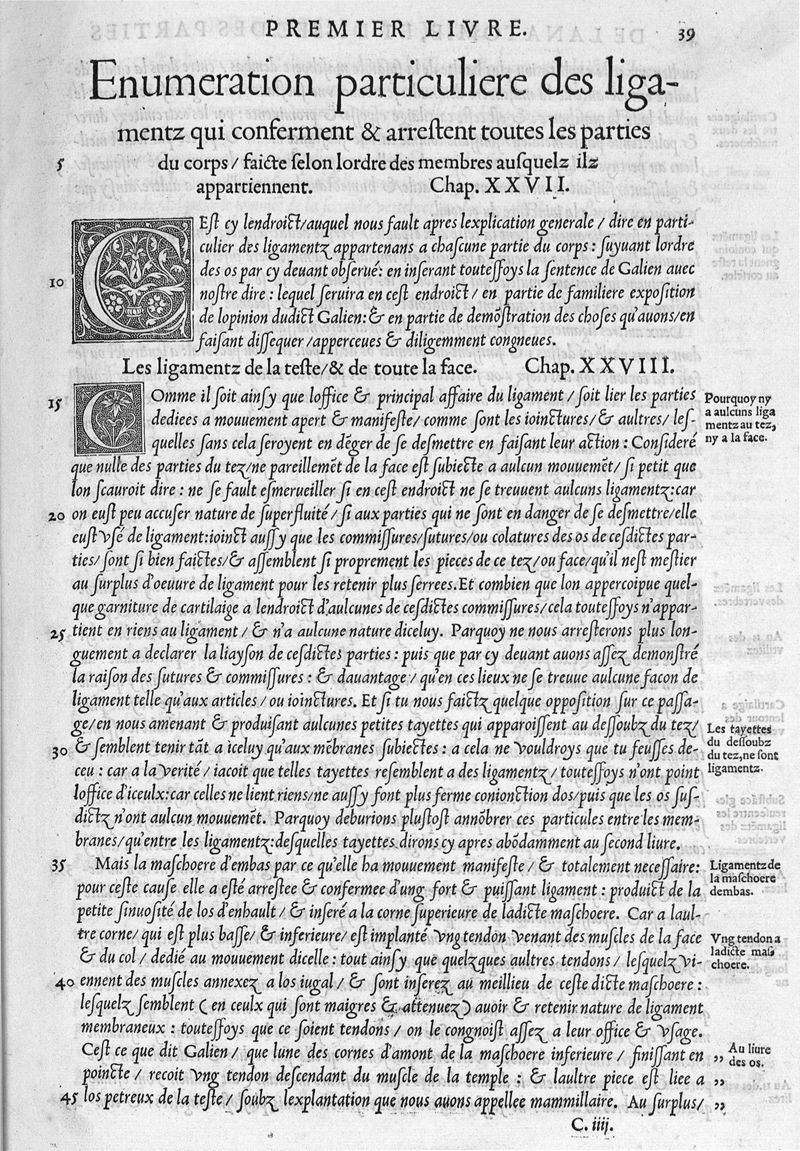 PREMIER LIVRE. 39
Enumeration particuliere des liga-
mentz qui conferment & arrestent toutes les parties
5 du corps / faicte selon lordre des membres ausquelz ilz
appartiennent. Chap. XXVII.
CEst cy lendroict/auquel nous fault apres lexplication generale / dire en parti-
culier des ligamentz appartenans a chascune partie du corps : suyuant lordre
des os par cy deuant obserué: en inserant touteffoys la sentence de Galien auec
10 nostre dire : lequel seruira en cest endroict / en partie de familiere exposition
de lopinion dudict Galien: & en partie de demõstration des choses qu'auons/en
faisant dissequer / apperceues & diligemment congneues.
Les ligamentz de la teste/& de toute la face. Chap. XXVIII.
15 COmme il soit ainsy que loffice & principal affaire du ligament / soit lier les parties
dediees a mouuement apert & manifeste/ comme sont les ioinctures/& aultres/ les-
quelles sans cela seroyent en dẽger de se desmettre en faisant leur action : Consideré
que nulle des parties du tez/ne pareillemẽt de la face est subiecte a aulcun mouuemẽt/ si petit que
lon scauroit dire : ne se fault esmerueiller si en cest endroict ne se treuuent aulcuns ligamentz:car
20 on eust peu accuser nature de superfluité / si aux parties qui ne sont en danger de se desmettre/elle
eust vsé de ligament:ioinct aussy que les commissures/sutures/ou colatures des os de cesdictes par-
ties/ sont si bien faictes/& assemblent si proprement les pieces de ce tez/ou face/qu'il nest mestier
au surplus d'oeuure de ligament pour les retenir plus serrees.Et combien que lon appercoipue quel-
que garniture de cartilaige a lendroict d'aulcunes de cesdictes commissures/cela touteffoys n'appar-
25 tient en riens au ligament / & n'a aulcune nature diceluy. Parquoy ne nous arresterons plus lon-
guement a declarer la liayson de cesdictes parties : puis que par cy deuant auons assez demonstré
la raison des sutures & commissures : & dauantage / qu'en ces lieux ne se treuue aulcune facon de
ligament telle qu'aux articles / ou ioinctures. Et si tu nous faictz quelque opposition sur ce passa-
ge/en nous amenant & produisant aulcunes petites tayettes qui apparoissent au dessoubz du tez/
30 & semblent tenir tãt a iceluy qu'aux mẽbranes subiectes : a cela ne vouldroys que tu feusses de-
ceu : car a la verité / iacoit que telles tayettes resemblent a des ligamentz / touteffoys n'ont point
loffice d'iceulx:car celles ne lient riens/ne aussy font plus ferme conionction dos/puis que les os sus-
dictz n'ont aulcun mouuemẽt. Parquoy deburions plustost annõbrer ces particules entre les mem-
branes/qu'entre les ligamentz:desquelles tayettes dirons cy apres abõdamment au second liure.
35 Mais la maschoere d'embas par ce qu'elle ha mouuement manifeste / & totalement necessaire:
pour ceste cause elle a esté arrestee & confermee d'ung fort & puissant ligament : produict de la
petite sinuosité de los d'enhault / & inseré a la corne superieure de ladicte maschoere. Car a laul-
tre corne/ qui est plus basse/ & inferieure/ est implanté vng tendon venant des muscles de la face
& du col / dedié au mouuement dicelle : tout ainsy que quelzques aultres tendons / lesquelz vi-
40 ennent des muscles annexez a los iugal / & sont inserez au meillieu de ceste dicte maschoere :
lesquelz semblent ( en ceulx qui sont maigres & attenuez ) auoir & retenir nature de ligament
membraneux : touteffoys que ce soient tendons / on le congnoist assez a leur office & vsage.
Cest ce que dit Galien / que lune des cornes d'amont de la maschoere inferieure / finissant en ,,
poincte / recoit vng tendon descendant du muscle de la temple : & laultre piece est liee a ,,
45 los petreux de la teste/ soubz lexplantation que nous auons appellee mammillaire. Au surplus/ ,,
C. iiij.
Pourquoy ny
a aulcuns liga
mentz au tez,
ny a la face.
Les tayettes
du dessoubz
du tez,ne sont
ligamentz.
Ligamentz de
la maschoere
dembas.
Vng tendon a
ladicte mas
choere.
Au liure
des os.